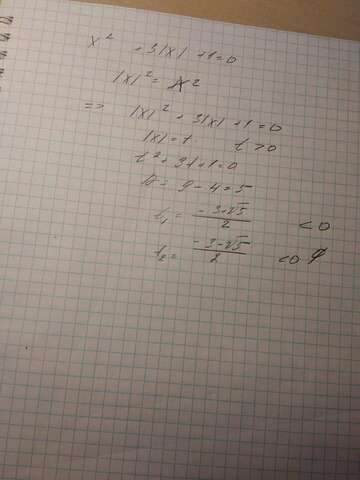 x² + 3|x| + 1 = 0
|x|² = x²
=> |x|² + 3|x| + 1 = 0
|x| = t t > 0
t² + 3t + 1 = 0
D = 9 - 4 = 5
t₁ = (-3+√5)/2 < 0
t₂ = (-3-√5)/2 < 0 ∅